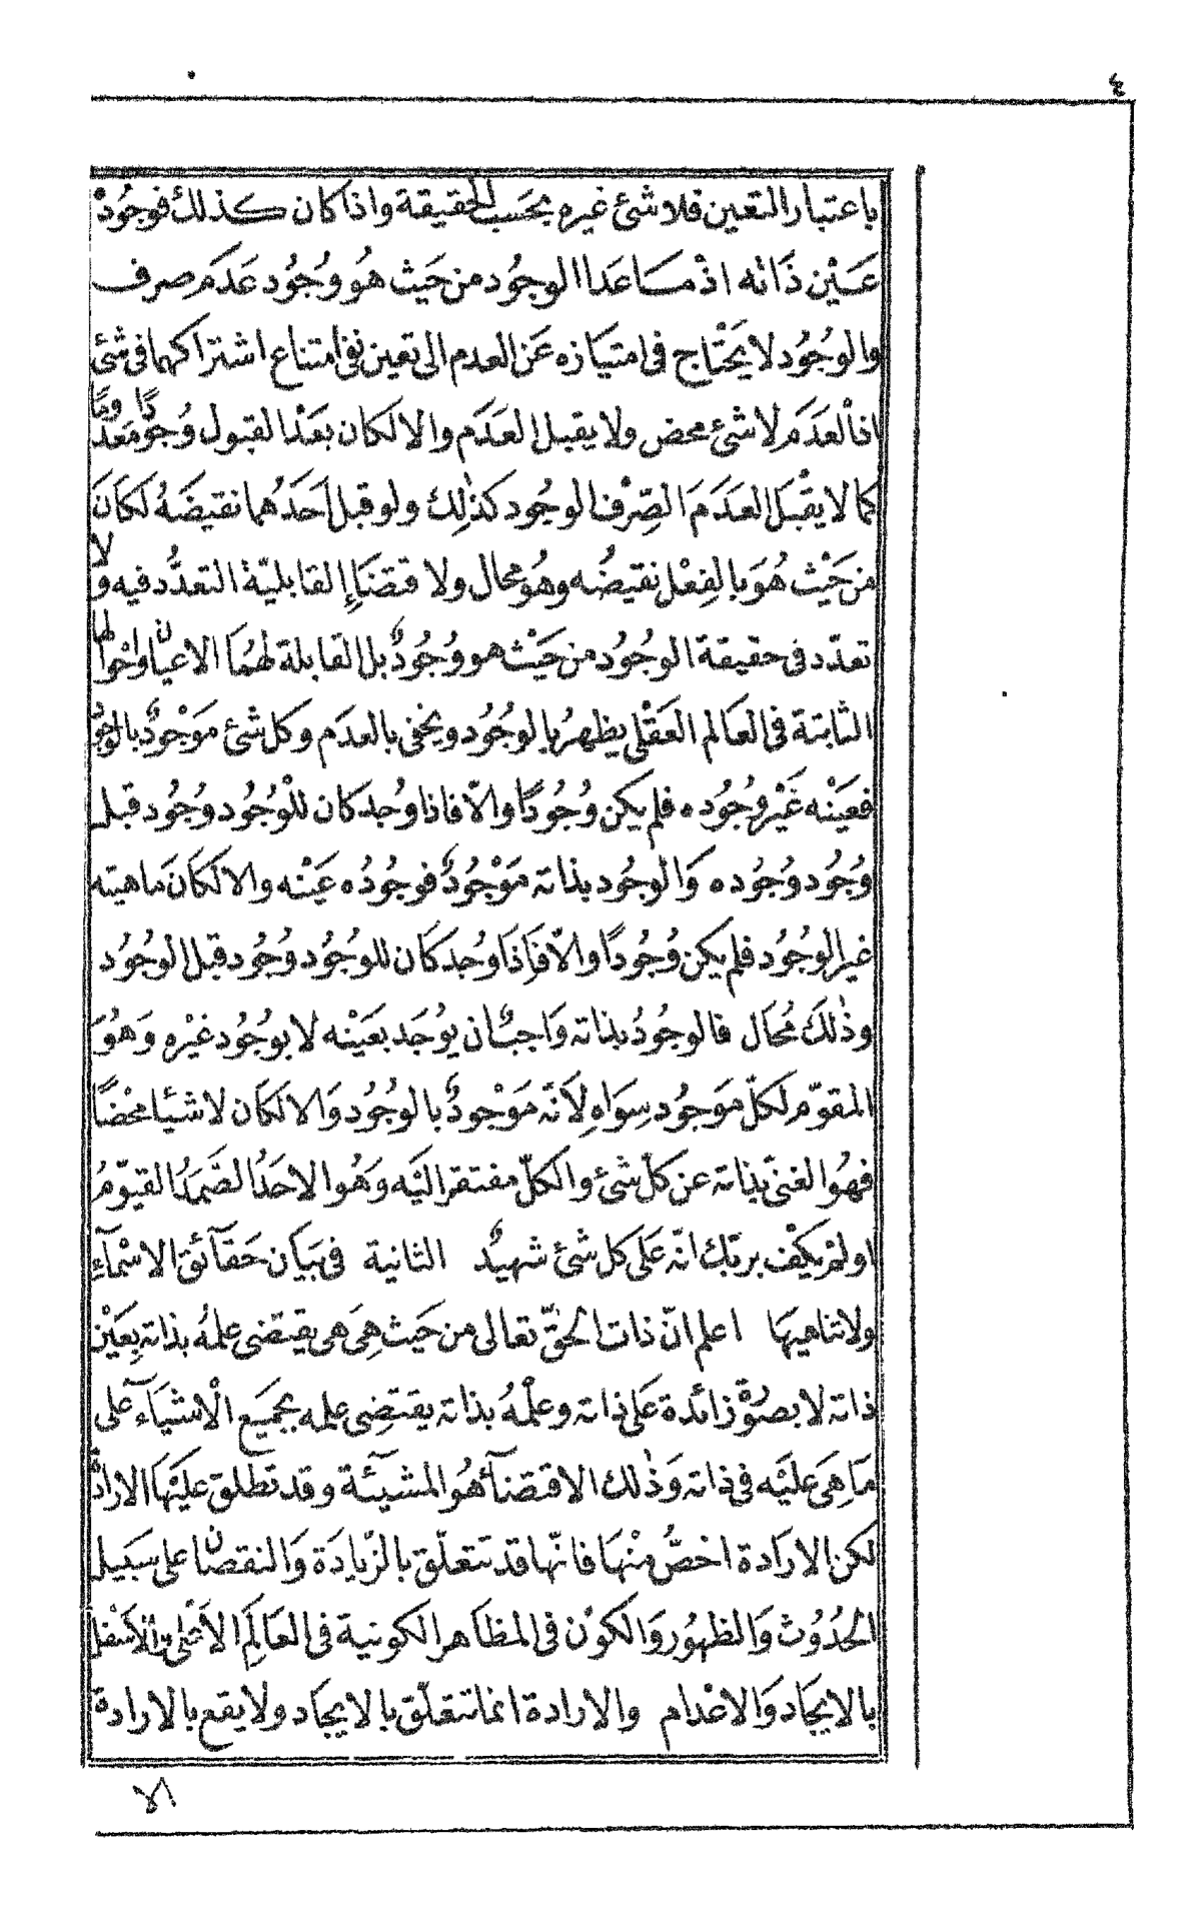 ٤
باعتبار التعين فلا شئ غيره بحَسب الحقيقة واذا كان كذلك فوجُودْ
عَيْن ذَاته اذْ مَا عَدا الوجُود من حَيث هُو وُجُود عَدَم صرف
والوجُود لا يَحْتاج فى امتيَازه عَن العدم الى تعين نفى امتناع اشتراكهما فى شئ
اذ العَدَم لا شئ محض ولا يقبل العَدَم والا لكان بعَدْ القبول وُجودًا معَدومًا
كما لا يقْبَل العَدَمَ الصِّرْف الوجُود كذٰلِك ولو قبل اَحَدُهما نقيضَهُ لكَانَ
من حَيْث هُوَ بالفِعْل نقيضُه وهُو محال ولا قتضَاءِ القابليّة التعدُّد فيه ولا
تعدّد فى حقيقة الوجُود من حَيْث هو وُجُودٌ بل القابلة لهُمَا الاعيان واحوالها
الثابتة فى العَالم العَقْلى يظهرُ بالوجُود ويخفى بالعدَم وكل شئ مَوْجودٌ بالوجُود
فعَيْنه غَيْر وُجُوده فلم يكن وُجُودًا والّا فاذا وُجد كان للْوُجُود وُجُود قبل
وُجُود وُجُوده وَالوجُود بذاته مَوْجُودٌ فوجُودُه عَيْنه والا لكَانَ ماهيته
غير الوجُود فلم يكن وُجُودًا والّا فَاِذَا وُجد كَان للوُجُود وُجُود قبل الوجُود
وذٰلكَ مُحَال فالوجُودُ بذاته وَاجبٌ ان يوُجَد بعَيْنه لا بوُجُود غيْره وَهُوَ
المقوّم لكلّ مَوجُود سِوَاه لِاَنّه مَوْجودٌ بالوجُود وَالا لكَان لا شيئا محْضًا
فهُو الغنىّ بذاته عن كلّ شئ والكلّ مفتقر اليَه وَهُو الاحَدُ الصَّمَدُ القيّومُ
اولمْ يكفِ بربّك انّه عَلى كل شئ شهيدٌ الثانية فى بَيَان حَقَآئق الاسْمآءِ
ولاتناهيها اعلم انّ ذات الحقّ تعالى من حَيث هِىَ هى يقتضى علمهُ بذاته بِعَيْن
ذاته لا بصُوْرة زائدة عَلى ذاته وعلْمهُ بذاته يقتضِى علمه بجَميَع الْاَشيَآء على
مَا هِىَ عليَه فى ذاته وَذٰلك الاقتضآء هُو المشيئة وقد تطلق عليَهَا الارادة
لكن الارادة اخصُّ منْهَا فانّها قد تتعلّق بالزّيادَة وَالنقصان على سَبَيل
الحُدُوُث وَالظهوُر وَالكوْن فى المظَاهر الكونية فى العَالَمِ الاَعْلى والاَسْفل
بالايجَاد وَالاعْدام والارادة انما تتعَلّق بالايجَاد ولا يقع بالارادة
الا